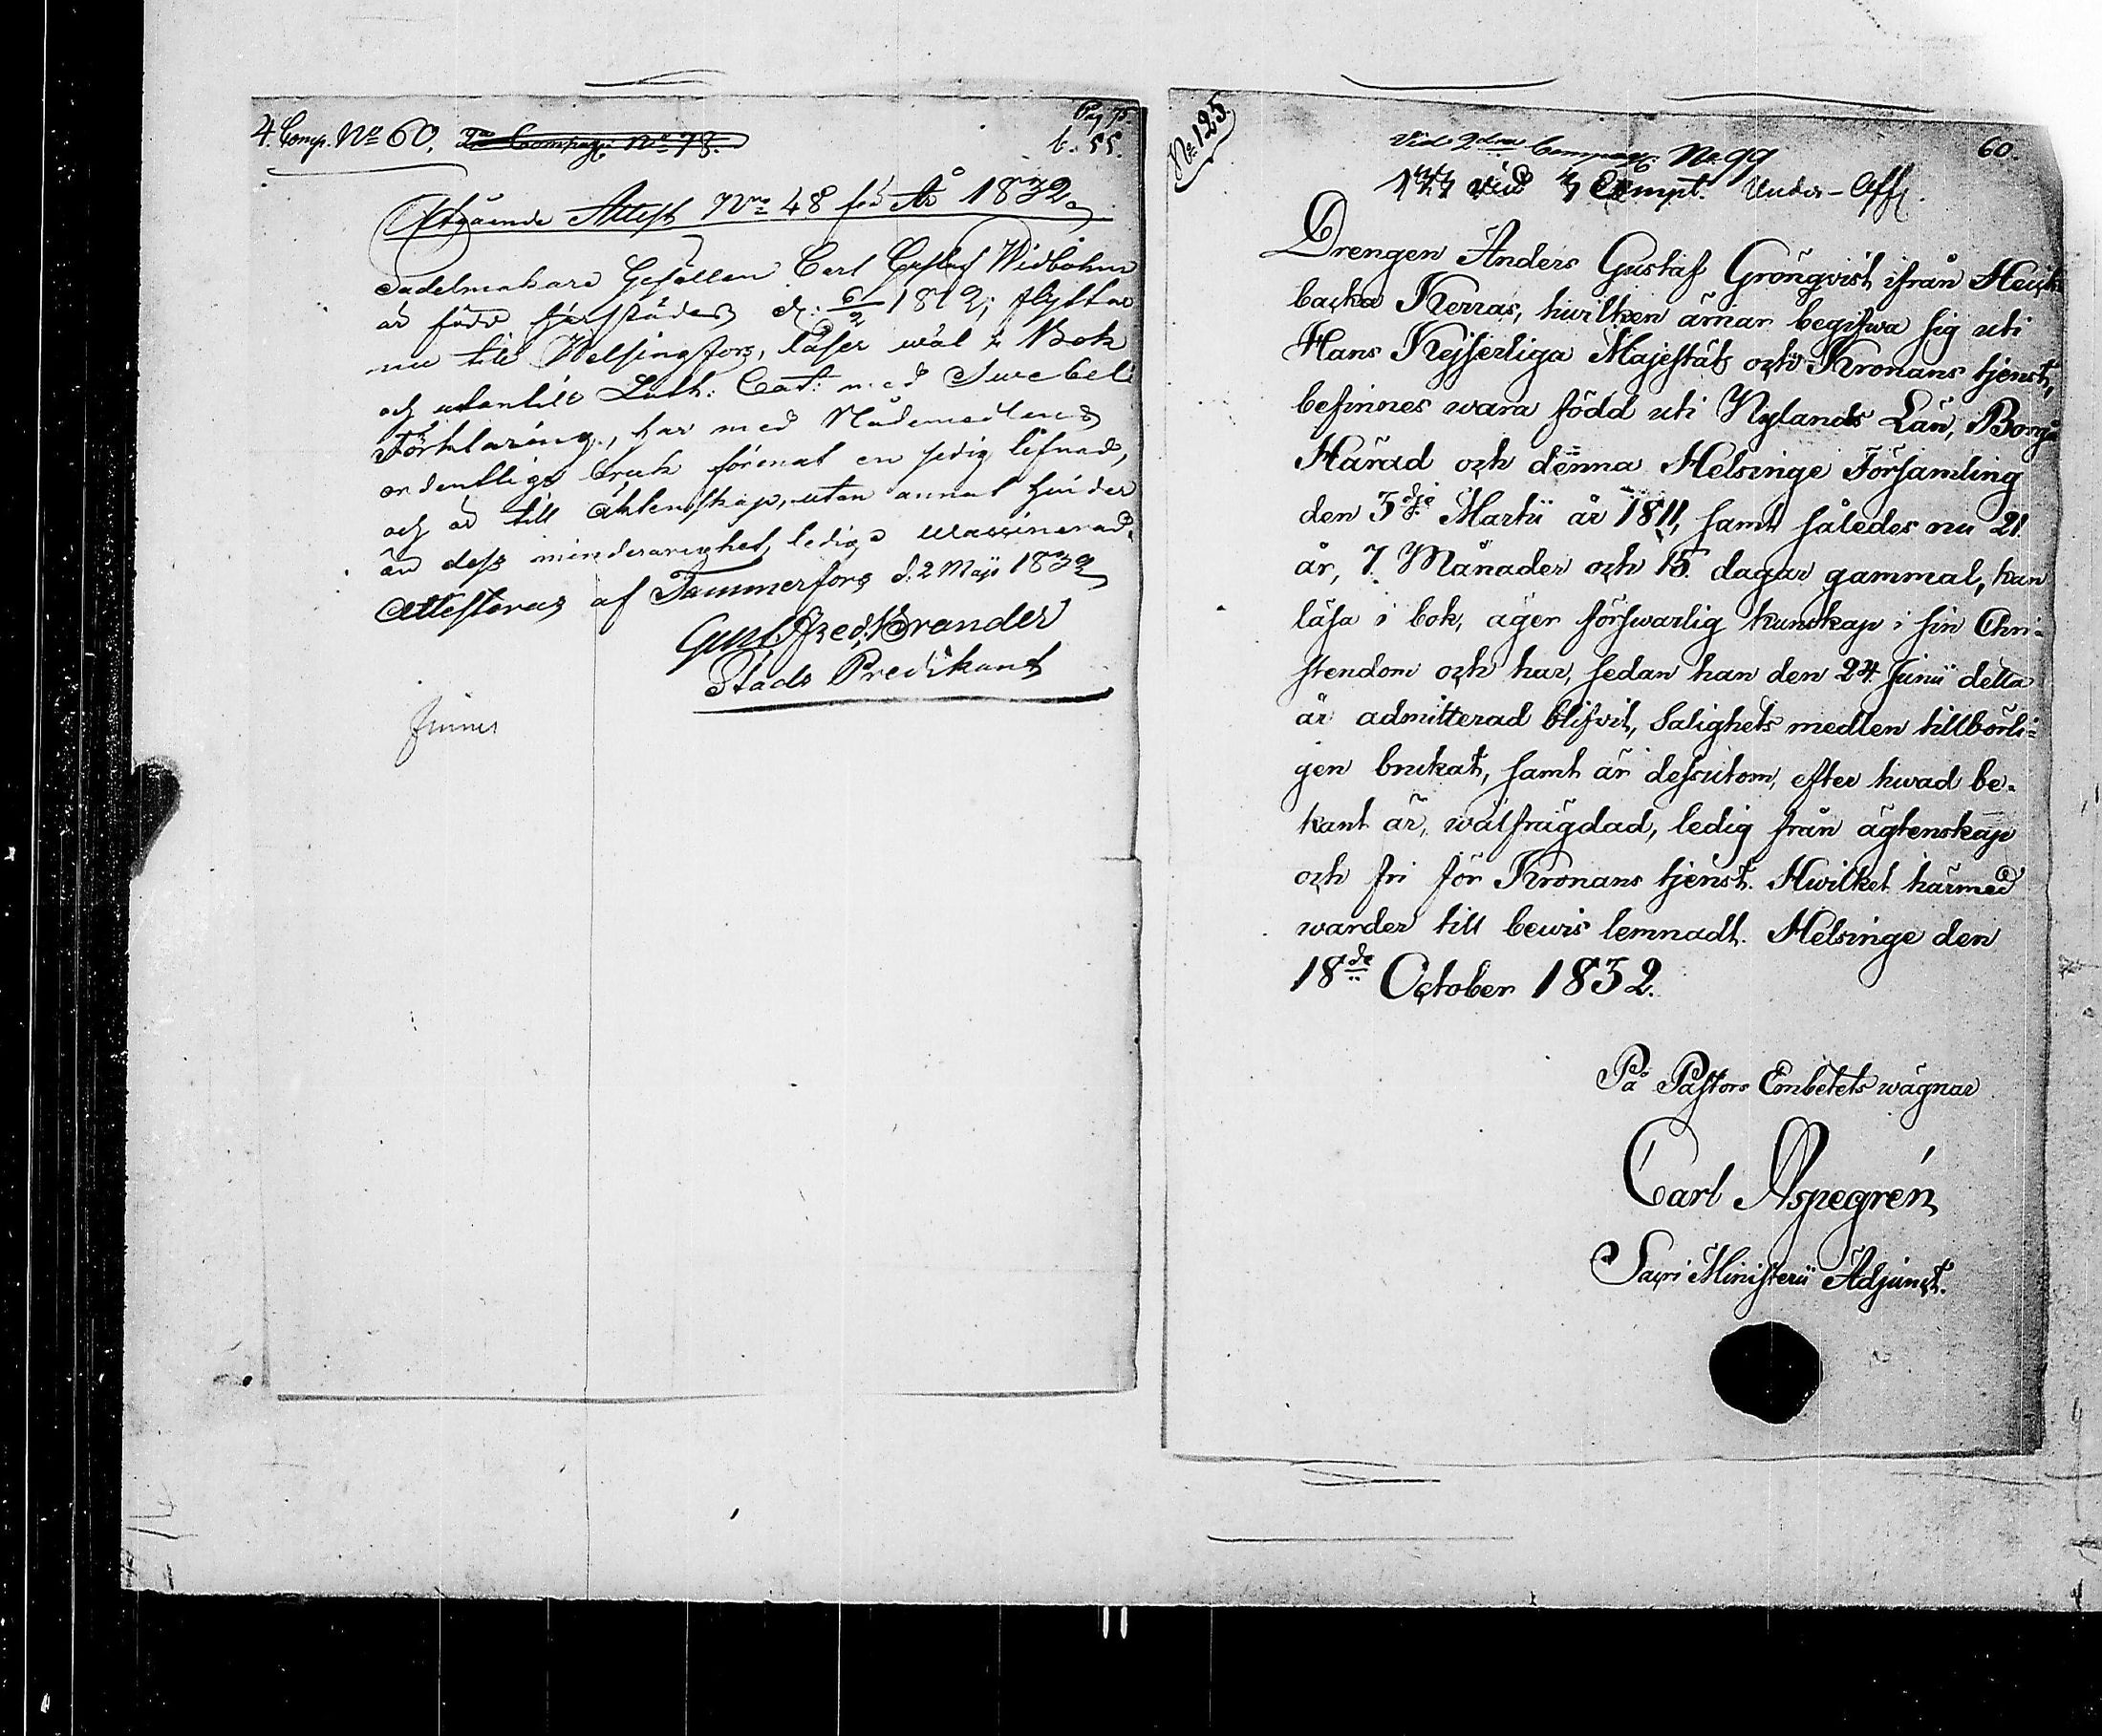 4. Comp. No 60. 2a Compag: No 73.
Pag 75
b. 55.
Utgående Attest Nro 48 för År 1832.
Sadelmakare Gesällen Carl Gustaf Widbohm
är född härstädes d: 6/2 1812; flyttar
nu till Helsingfors, läser wäl i Bok
och utantill Luth: Cat: med Swebelii
Förklaring, har med Nådemedlens
ordentliga bruk förenat en sedig lefnad,
och är till äktenskap, utan annat hinder
än dess minderårighet, ledig. Waccinerad.
Attesteras af Tammerfors d. 2 Maji 1832
Gust Fred: Brander
Stads Predikant
finnes
No 125.
60.
Vid 2dra Compag: No 99
177 vid 4 Compt. Under-Off.
Drengen Anders Gustaf Grönqvist ifrån Heick
backa Kerras, hwilken ärnar begifwa sig uti
Hans Kejserliga Majestäts och Kronans tjenst,
befinnes wara född uti Nylands Län, Borgå
Härad och denna Helsinge Församling
den 3dje Martii år 1811, samt således nu 21
år, 7. Månader och 15. dagar gammal, kan
läsa i bok, äger förswarlig kunskap i sin Chri-
stendom och har, sedan han den 24. Junii detta
år admitterad blifvit, Salighets medlen tillbörli-
gen brukat, samt är dessutom, efter hwad be-
kant är, wälfrägdad, ledig från ägtenskap
och fri för Kronans tjenst. Hwilket härmed
warder till bewis lemnadt. Helsinge den
18de October 1832.
På Pastors Embetets wägnar
Carl Aspegrén
Sacri Ministerii Adjunct.